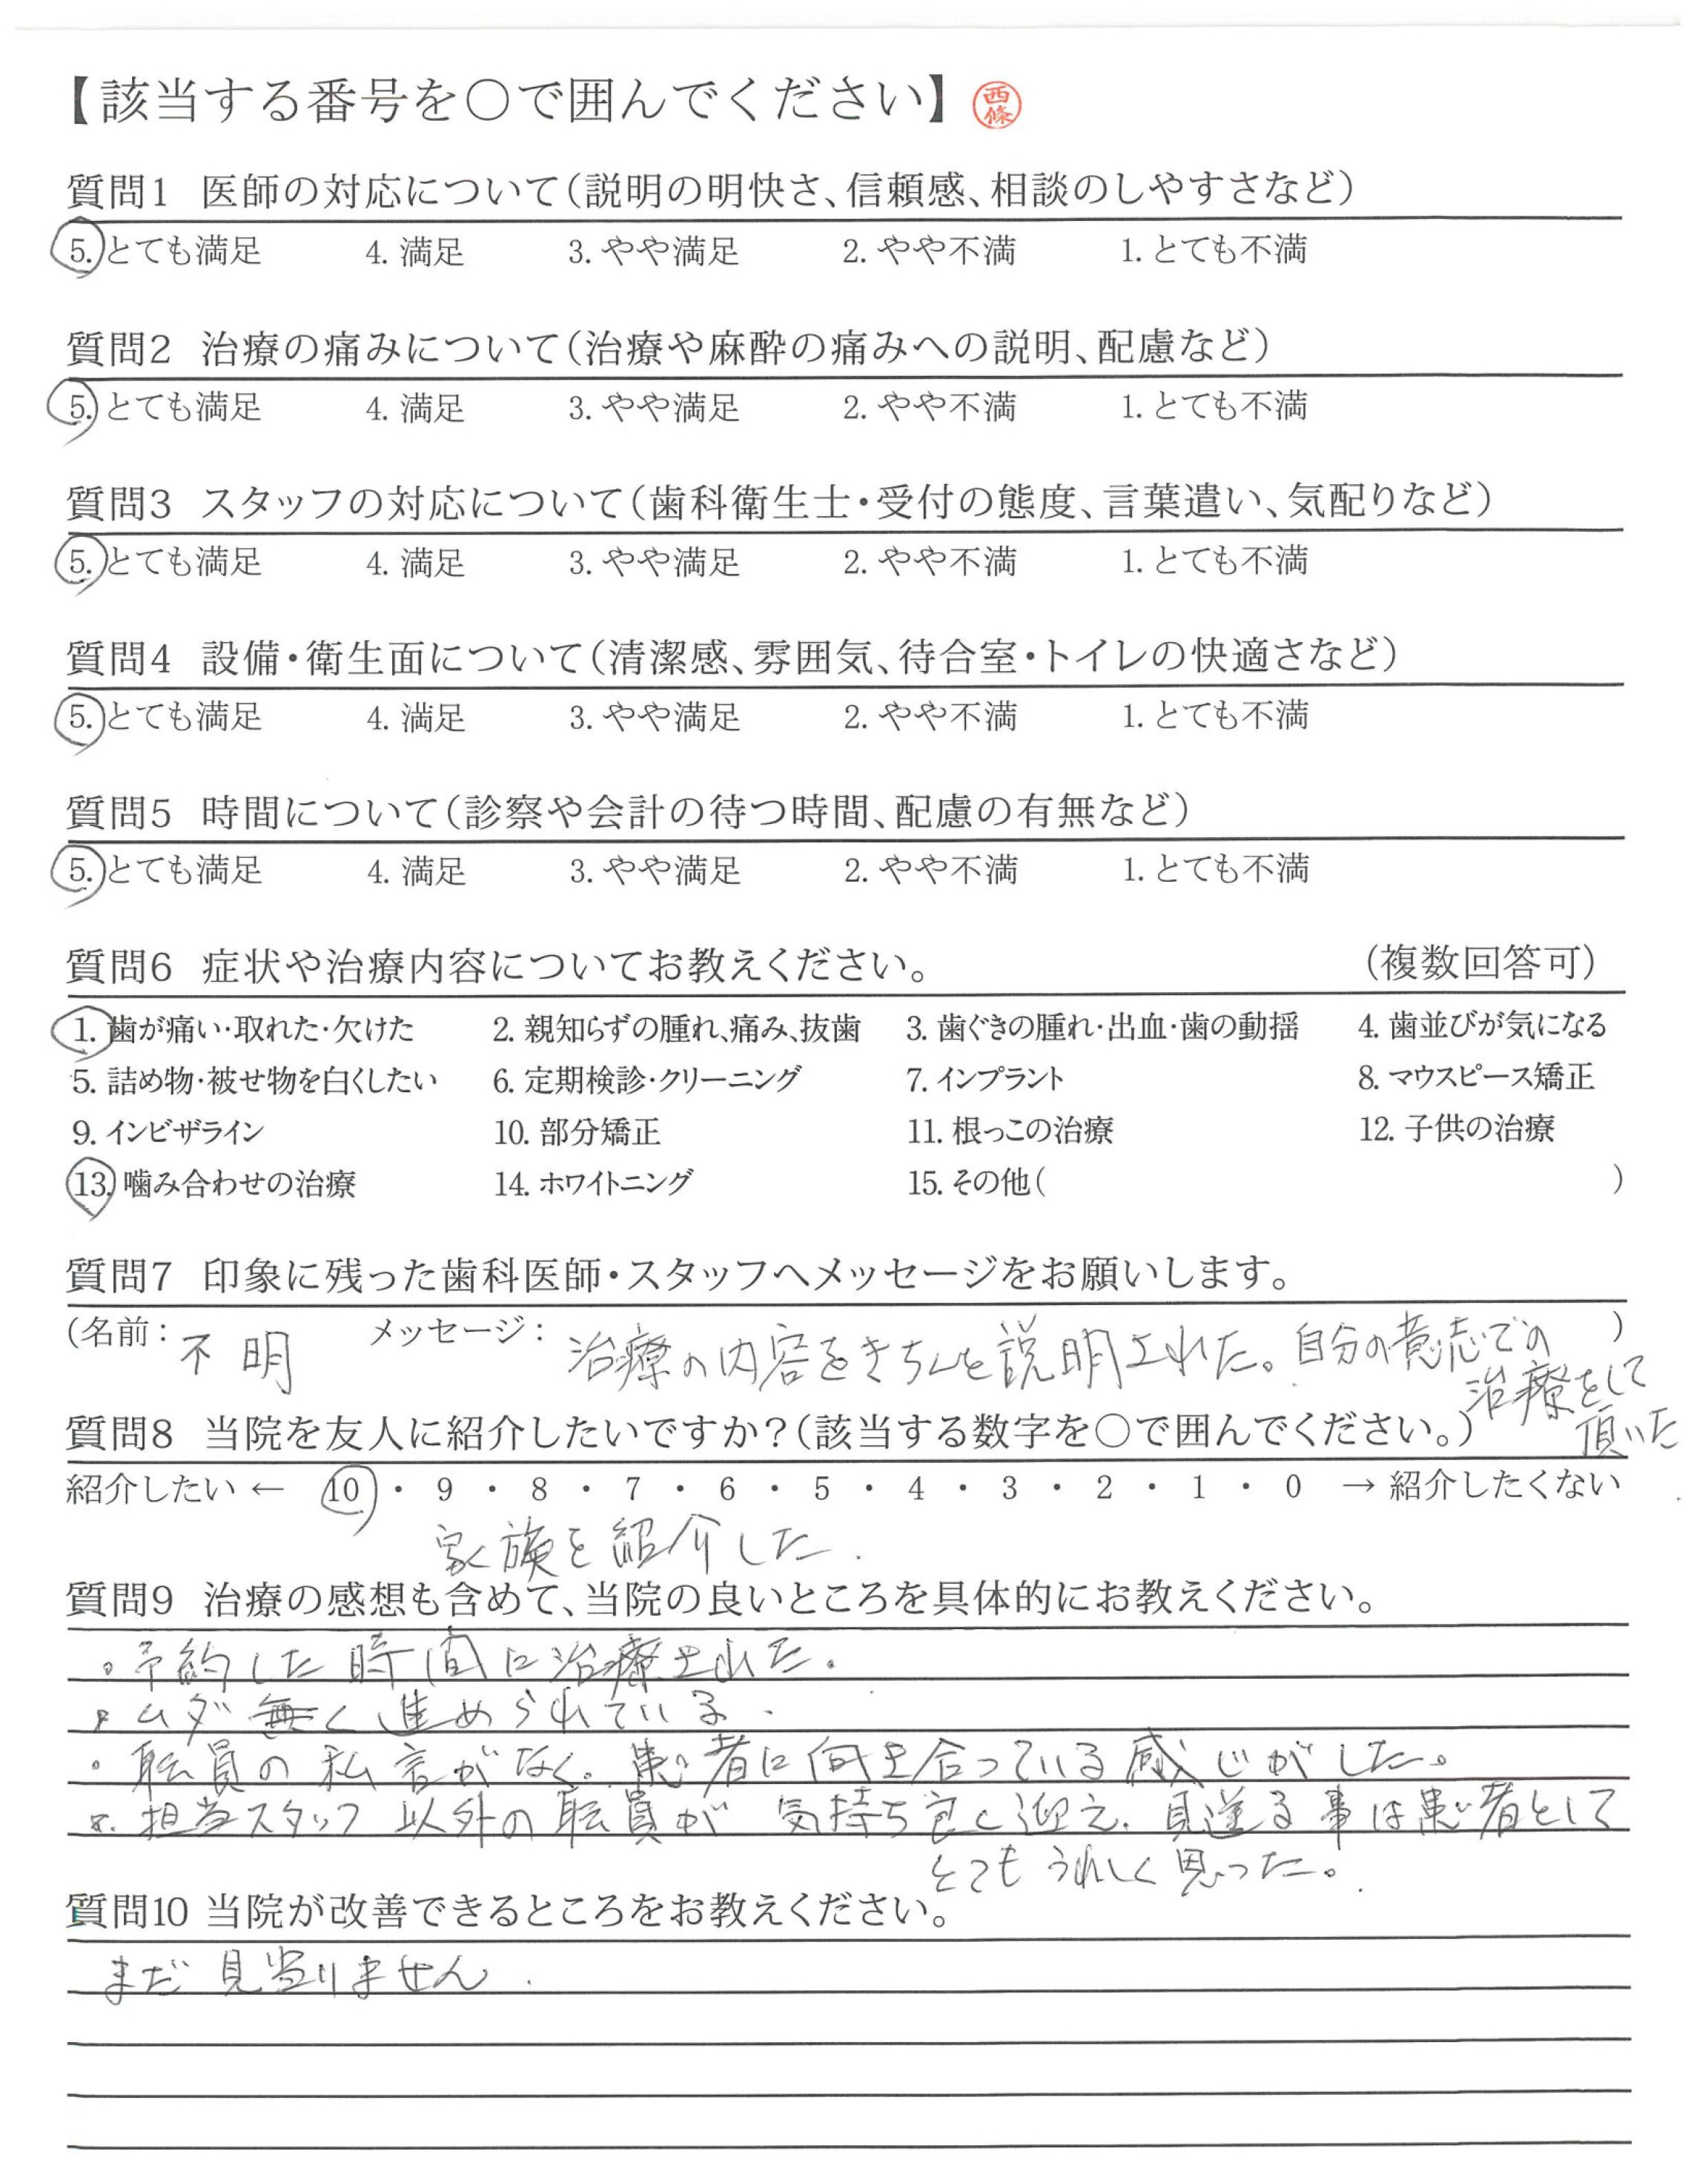 【該当する番号を○で囲んでください】 西條
質問1 医師の対応について(説明の明快さ、信頼感、相談のしやすさなど)
5. とても満足 4. 満足 3. やや満足 2. やや不満 1. とても不満
質問2 治療の痛みについて(治療や麻酔の痛みへの説明、配慮など)
5. とても満足 4. 満足 3. やや満足 2. やや不満 1. とても不満
質問3 スタッフの対応について(歯科衛生士・受付の態度、言葉遣い、気配りなど)
5. とても満足 4. 満足 3. やや満足 2. やや不満 1. とても不満
質問4 設備・衛生面について(清潔感、雰囲気、待合室・トイレの快適さなど)
5. とても満足 4. 満足 3. やや満足 2. やや不満 1. とても不満
質問5 時間について(診察や会計の待つ時間、配慮の有無など)
5. とても満足 4. 満足 3. やや満足 2. やや不満 1. とても不満
質問6 症状や治療内容についてお教えください。 (複数回答可)
1. 歯が痛い・取れた・欠けた 2. 親知らずの腫れ、痛み、抜歯 3. 歯ぐきの腫れ・出血・歯の動揺 4. 歯並びが気になる
5. 詰め物・被せ物を白くしたい 6. 定期検診・クリーニング 7. インプラント 8. マウスピース矯正
9. インビザライン 10. 部分矯正 11. 根っこの治療 12. 子供の治療
13. 噛み合わせの治療 14. ホワイトニング 15. その他( )
質問7 印象に残った歯科医師・スタッフへメッセージをお願いします。
(名前: 不明 メッセージ: 治療の内容をきちんと説明された。自分の意志での )
治療をして
頂いた
質問8 当院を友人に紹介したいですか?(該当する数字を○で囲んでください。)
紹介したい ← 10 ・ 9 ・ 8 ・ 7 ・ 6 ・ 5 ・ 4 ・ 3 ・ 2 ・ 1 ・ 0 → 紹介したくない
家族を紹介した.
質問9 治療の感想も含めて、当院の良いところを具体的にお教えください。
。予約した時間に治療された.
・ムダ無く進められている.
・職員の私言がなく。患者に向き合っている感じがした。
・担当スタッフ以外の職員が気持ち良く迎え、見送る事は患者として
とてもうれしく思った。
質問10 当院が改善できるところをお教えください。
まだ見当りません.